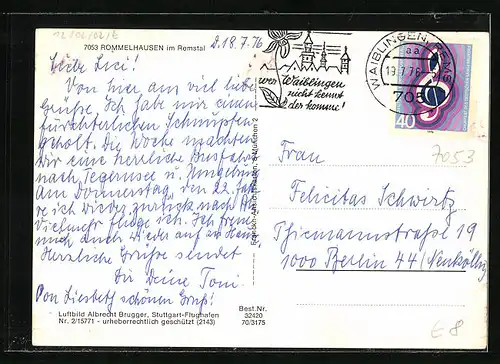 12/02/02/E
7053 ROMMELHAUSEN im Remstal
D. 18.7.76
Liebe Lici!
Von hier aus viel liebe
Grüße. Ich habe mir einen
fürchterlichen Schnupfen
geholt. Die Woche machten
wir eine herrliche Busfahrt
nach Tegernsee u. Umgebung
Am Donnerstag, den 22. fah-
re ich wieder zurück nach
flüge ich. Ich freue
mich auch wieder auf zu Haus
Herzliche Grüße sendet
Dir Deine Tom.
Von Liesbeth schönen Gruß!
Luftbild Albrecht Brugger, Stuttgart-Flughafen
Nr. 2/15771 - urheberrechtlich geschützt (2143)
Best.Nr.
32420
70/3175
wer Waiblingen
nicht kennt
der komme!
WAIBLINGEN, REMS
aa
19.7.76
705
40
7053
Frau
Felicitas Schwertz
Thiemannstraße 19
1000 Berlin 44 (Neukölln)
€8